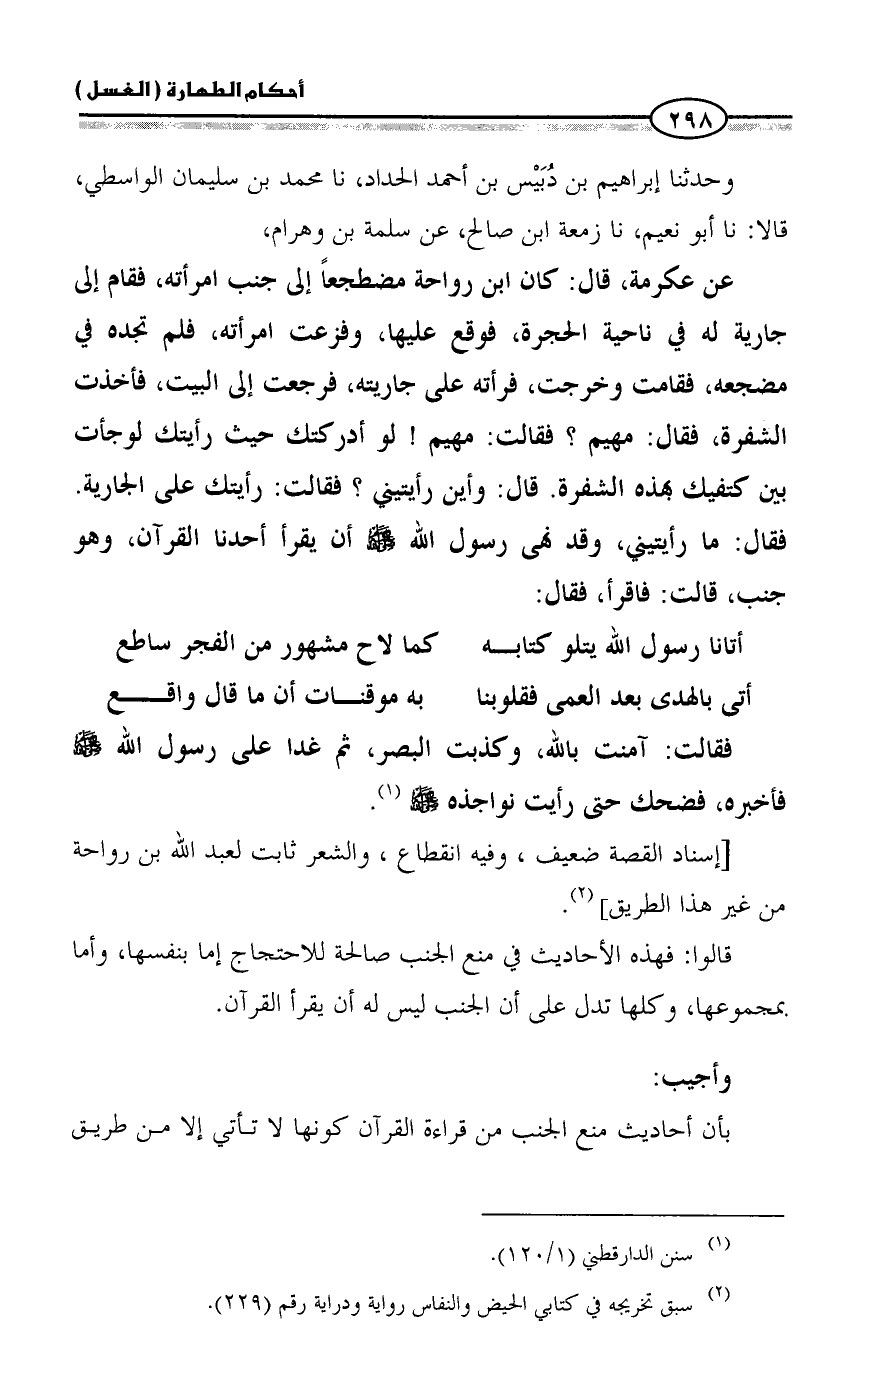 أحكام الطهارة (الغسل)
٢٩٨
وحدثنا إبراهيم بن دُبَيْس بن أحمد الحداد، نا محمد بن سليمان الواسطي،
قالا: نا أبو نعيم، نا زمعة ابن صالح، عن سلمة بن وهرام،
عن عكرمة، قال: كان ابن رواحة مضطجعاً إلى جنب امرأته، فقام إلى
جارية له في ناحية الحجرة، فوقع عليها، وفزعت امرأته، فلم تجده في
مضجعه، فقامت وخرجت، فرأته على جاريته، فرجعت إلى البيت، فأخذت
الشفرة، فقال: مهيم ؟ فقالت: مهيم ! لو أدركتك حيث رأيتك لوجأت
بين كتفيك بهذه الشفرة. قال: وأين رأيتيني ؟ فقالت: رأيتك على الجارية.
فقال: ما رأيتيني، وقد نهى رسول الله ﷺ أن يقرأ أحدنا القرآن، وهو
جنب، قالت: فاقرأ، فقال:
أتانا رسول الله يتلو كتابـــه كما لاح مشهور من الفجر ساطع
أتى بالهدى بعد العمى فقلوبنا به موقنـــات أن ما قال واقــــع
فقالت: آمنت بالله، وكذبت البصر، ثم غدا على رسول الله ﷺ
فأخبره، فضحك حتى رأيت نواجذه ﷺ (١).
[إسناد القصة ضعيف ، وفيه انقطاع ، والشعر ثابت لعبد الله بن رواحة
من غير هذا الطريق] (٢).
قالوا: فهذه الأحاديث في منع الجنب صالحة للاحتجاج إما بنفسها، وأما
بمجموعها، وكلها تدل على أن الجنب ليس له أن يقرأ القرآن.
وأجيب:
بأن أحاديث منع الجنب من قراءة القرآن كونها لا تـأتي إلا مـن طريـق
(١) سنن الدارقطني (١٢٠/١).
(٢) سبق تخريجه في كتابي الحيض والنفاس رواية ودراية رقم (٢٢٩).